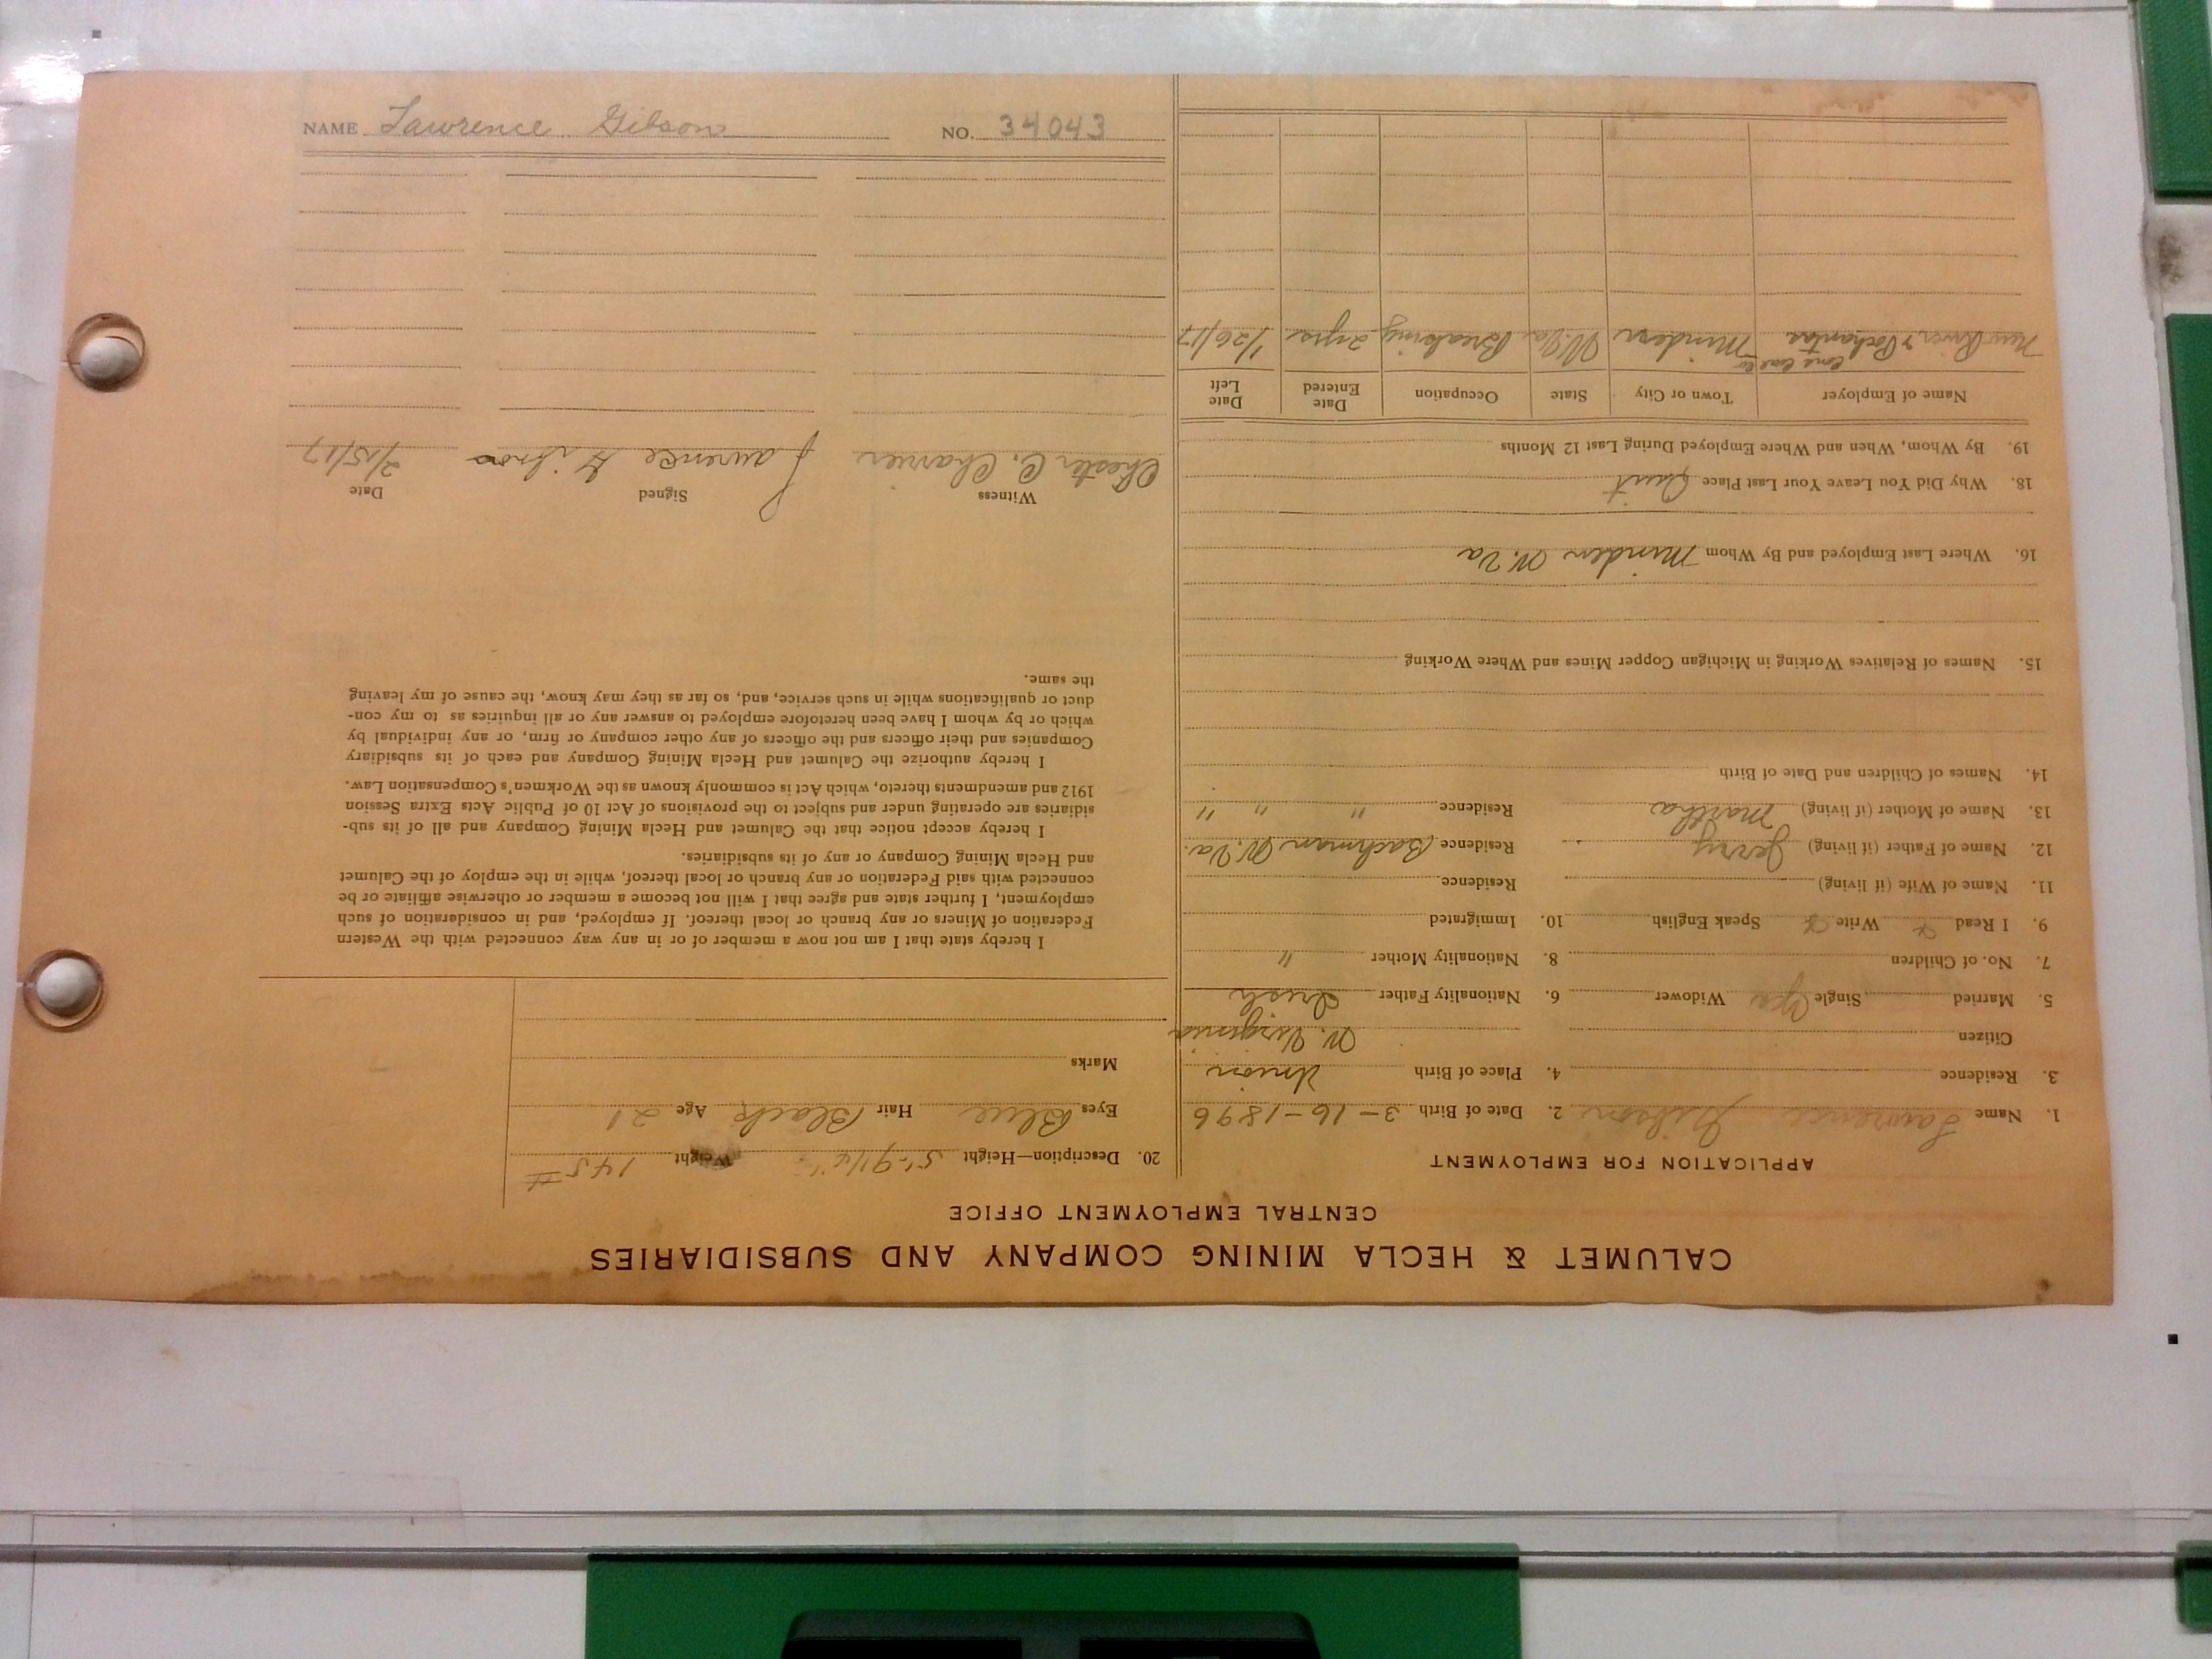 CALUMET & HECLA MINING COMPANY AND SUBSIDIARIES
CENTRAL EMPLOYMENT OFFICE
APPLICATION FOR EMPLOYMENT
1. Name Lawrence Gibson 2. Date of Birth 3-16-1896
3. Residence 4. Place of Birth Union
Citizen W. Virginia
5. Married Single Yes Widower 6. Nationality Father Irish
7. No. of Children 8. Nationality Mother "
9. I Read Write Speak English 10. Immigrated
11. Name of Wife (if living) Residence
12. Name of Father (if living) Jerry Residence Bachman W. Va.
13. Name of Mother (if living) Martha Residence " " "
14. Names of Children and Date of Birth
15. Names of Relatives Working in Michigan Copper Mines and Where Working
16. Where Last Employed and By Whom Minden W. Va
18. Why Did You Leave Your Last Place Quit
19. By Whom, When and Where Employed During Last 12 Months
Name of Employer Town or City State Occupation Date Entered Date Left
New River & Pocahontas Minden W. Va Breaking 2 yrs 1/26/17
Coal Co
20. Description—Height 5'-9 1/4" Weight 145 #
Eyes Blue Hair Black Age 21
Marks
I hereby state that I am not now a member of or in any way connected with the Western
Federation of Miners or any branch or local thereof. If employed, and in consideration of such
employment, I further state and agree that I will not become a member or otherwise affiliate or be
connected with said Federation or any branch or local thereof, while in the employ of the Calumet
and Hecla Mining Company or any of its subsidiaries.
I hereby accept notice that the Calumet and Hecla Mining Company and all of its sub-
sidiaries are operating under and subject to the provisions of Act 10 of Public Acts Extra Session
1912 and amendments thereto, which Act is commonly known as the Workmen's Compensation Law.
I hereby authorize the Calumet and Hecla Mining Company and each of its subsidiary
Companies and their officers and the officers of any other company or firm, or any individual by
which or by whom I have been heretofore employed to answer any or all inquiries as to my con-
duct or qualifications while in such service, and, so far as they may know, the cause of my leaving
the same.
Witness Signed Date
Chester C. Lawrence Gibson 2/15/17
NAME Lawrence Gibson NO. 34043